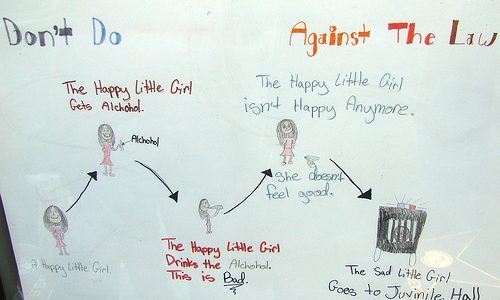 Don't Do
Against The Law
A Happy Little Girl.
The Happy Little Girl
Gets Alchohol.
Alchohol
The Happy Little Girl
Drinks the Alchohol.
This is Bad.
The Happy Little Girl
isn't Happy Anymore.
She doesn't
feel good.
The Sad Little Girl
Goes to Juvinile Hall